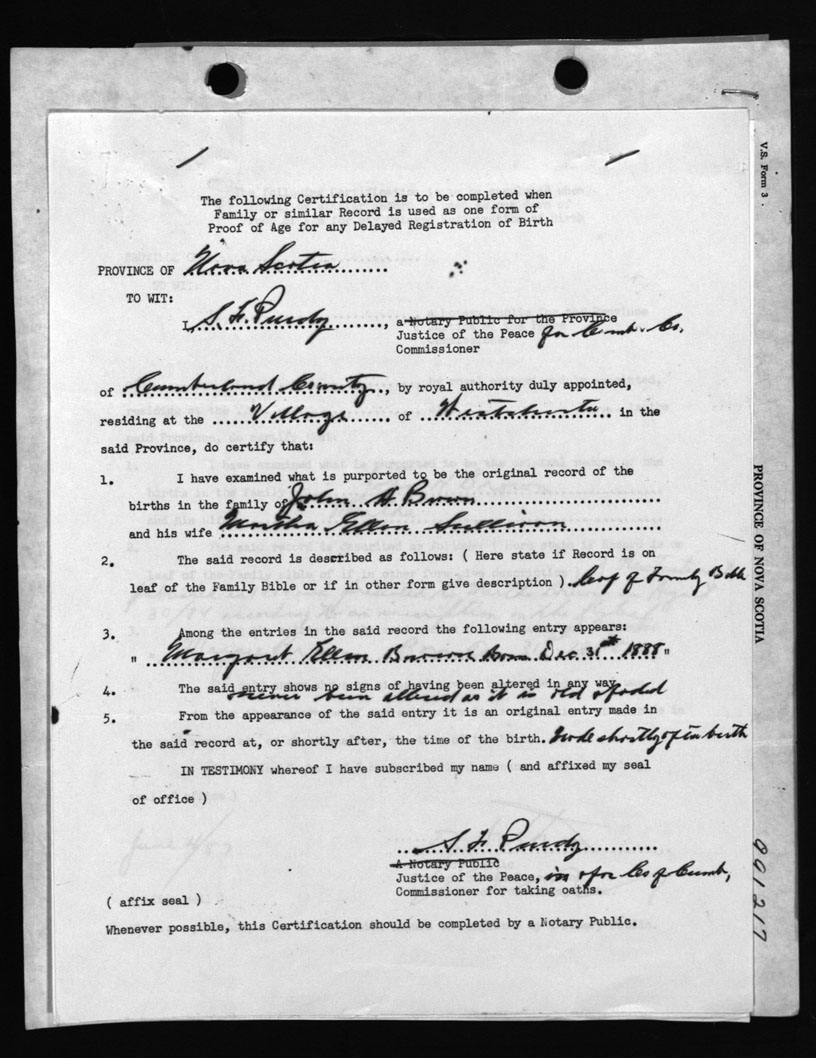 V.S. Form 3.
The following Certification is to be completed when
Family or similar Record is used as one form of
Proof of Age for any Delayed Registration of Birth
PROVINCE OF Nova Scotia
TO WIT:
I, S. F. Purdy, a Notary Public for the Province
Justice of the Peace for Cumb. Co.
Commissioner
of Cumberland County, by royal authority duly appointed,
residing at the Village of in the
said Province, do certify that:
1. I have examined what is purported to be the original record of the
births in the family of John A Brown
and his wife Martha Ellen Sullivan
2. The said record is described as follows: ( Here state if Record is on
leaf of the Family Bible or if in other form give description ) leaf of Family Bible
3. Among the entries in the said record the following entry appears:
" Margaret Ellen Brown Born Dec 31st 1888 "
4. The said entry shows no signs of having been altered in any way.
never been altered as it is old & faded
5. From the appearance of the said entry it is an original entry made in
the said record at, or shortly after, the time of the birth. Made shortly after birth
IN TESTIMONY whereof I have subscribed my name ( and affixed my seal
of office )
S. F. Purdy
A Notary Public
Justice of the Peace, in & for Co of Cumb,
Commissioner for taking oaths.
( affix seal )
Whenever possible, this Certification should be completed by a Notary Public.
PROVINCE OF NOVA SCOTIA
991217